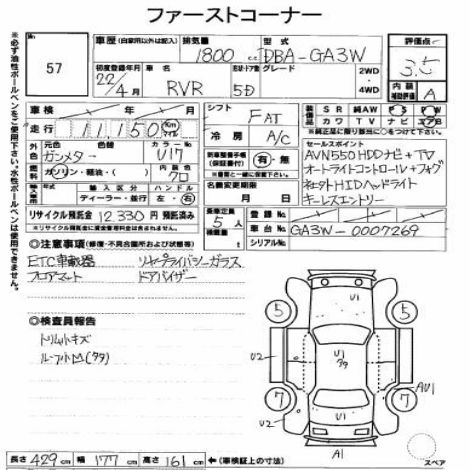 ファーストコーナー
※必ず油性ボールペンをご使用下さい。水性ボールペンは使用できません。
No.
57
車歴 (自家用以外は記入)
排気量 1800 cc
型式 DBA-GA3W
評価点 3.5
初度登録年月 22/4月
車名 RVR
5D
グレード
2WD
・
4WD
内装 補助評価 A
車検 / 年 / 月 /
シフト FAT
装備 SR 純AW PS PW
カワ TV ナビ エアB
※純正品に限り装備に○をつけて下さい。
走行 11,150 Km マイル
冷房 A/C
外色 元色 ガンメタ
色替
カラーNo U17
新車整備手帳 (保証書付) 有・無
セールスポイント
AVN550HDDナビ+TV
オートライトコントロール+フォグ
社外HIDヘッドライト
キーレスエントリー
燃料 ガソリン・軽油・( )
内装色 クロ
名義変更期限 / 月 / 日
輸入車 ディーラー・並行
ハンドル 左・右
リサイクル預託金 12,330 円 預託済み
乗車定員 5人
登録No.
車台No. GA3W-0007269
シリアルNo.
◎注意事項 (修復・不具合箇所および状態等)
ETC車載器 リヤプライバシーガラス
フロアマット ドアバイザー
◎検査員報告
トリムキズ
U1
5
5
U2
U1
U2
AU1
7
7
A1
スペア
長さ 429 cm 幅 177 cm 高さ 161 cm ←(車検証上の寸法)